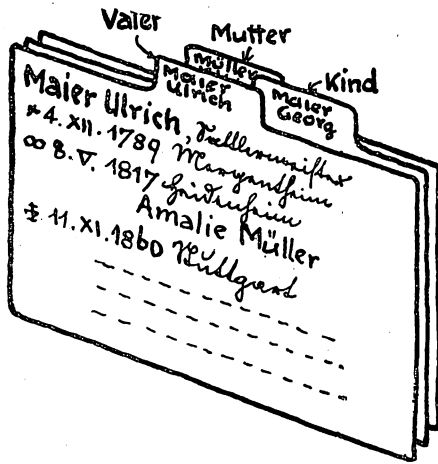 Vater
Mutter
Kind
Müller
Maier
Ulrich
Maier
Georg
Maier Ulrich, Sattlermeister
* 4. XII. 1789 Mergentheim
∞ 8. V. 1817 Heidenheim
Amalie Müller
11. XI. 1860 Stuttgart